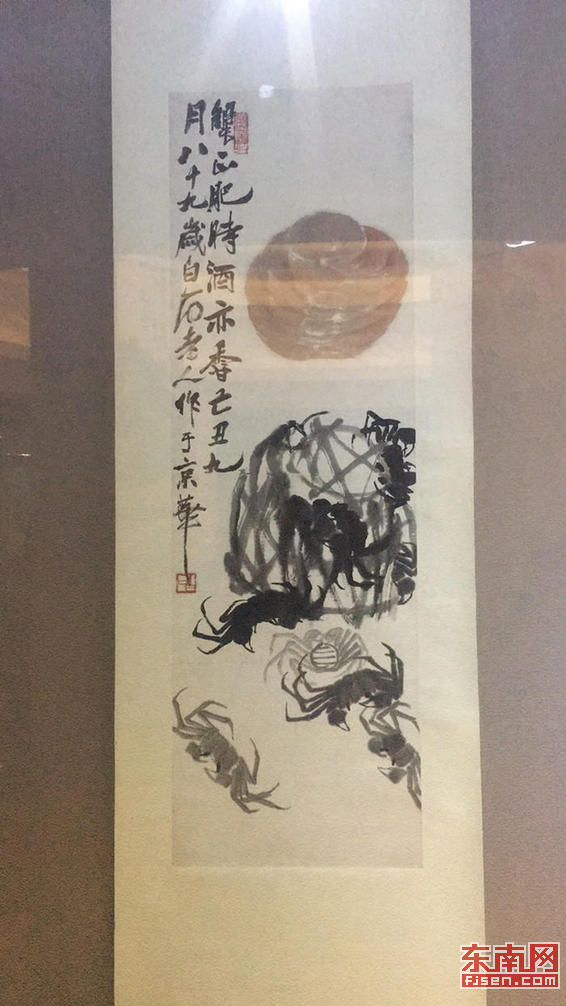 蟹正肥時酒亦香己丑九
月八十九歲白石老人作于京華
东南网
fjsen.com